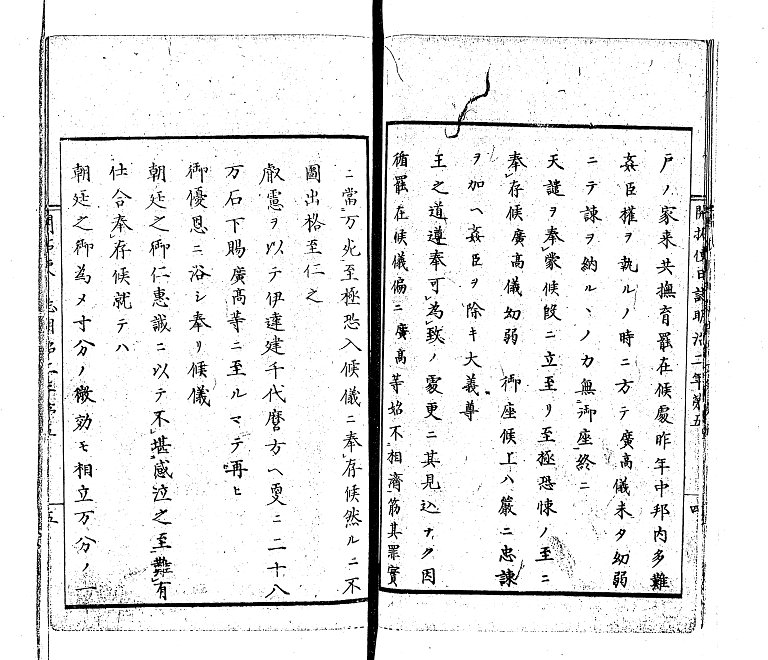 戸ノ家来共撫育罷在候處昨年中邦内多難
姦臣權ヲ執ルノ時ニ方テ廣高儀未タ幼弱
ニテ諫ヲ納ルヽノカ無御座終ニ
天譴ヲ奉蒙候段ニ立至リ至極恐悚ノ至ニ
奉存候廣高儀幼弱 御座候上ハ嚴ニ忠諫
ヲ加ヘ姦臣ヲ除キ大義尊
王之道遵奉可為致ノ處更ニ其見込ナク因
循罷在候儀偏ニ廣高等始不相濟筋其罪實
ニ當万死至極恐入候儀ニ奉存候然ルニ不
圖出格至仁之
叡慮ヲ以テ伊達建千代麿方ヘ更ニ二十八
万石下賜廣高等ニ至ルマテ再ヒ
御優恩ニ浴シ奉リ候儀
朝廷之御仁惠誠ニ以テ不堪感泣之至難有
仕合奉存候就テハ
朝廷之御為メ寸分ノ微効モ相立万分ノ一
開拓使日誌明治二年第五
四
五